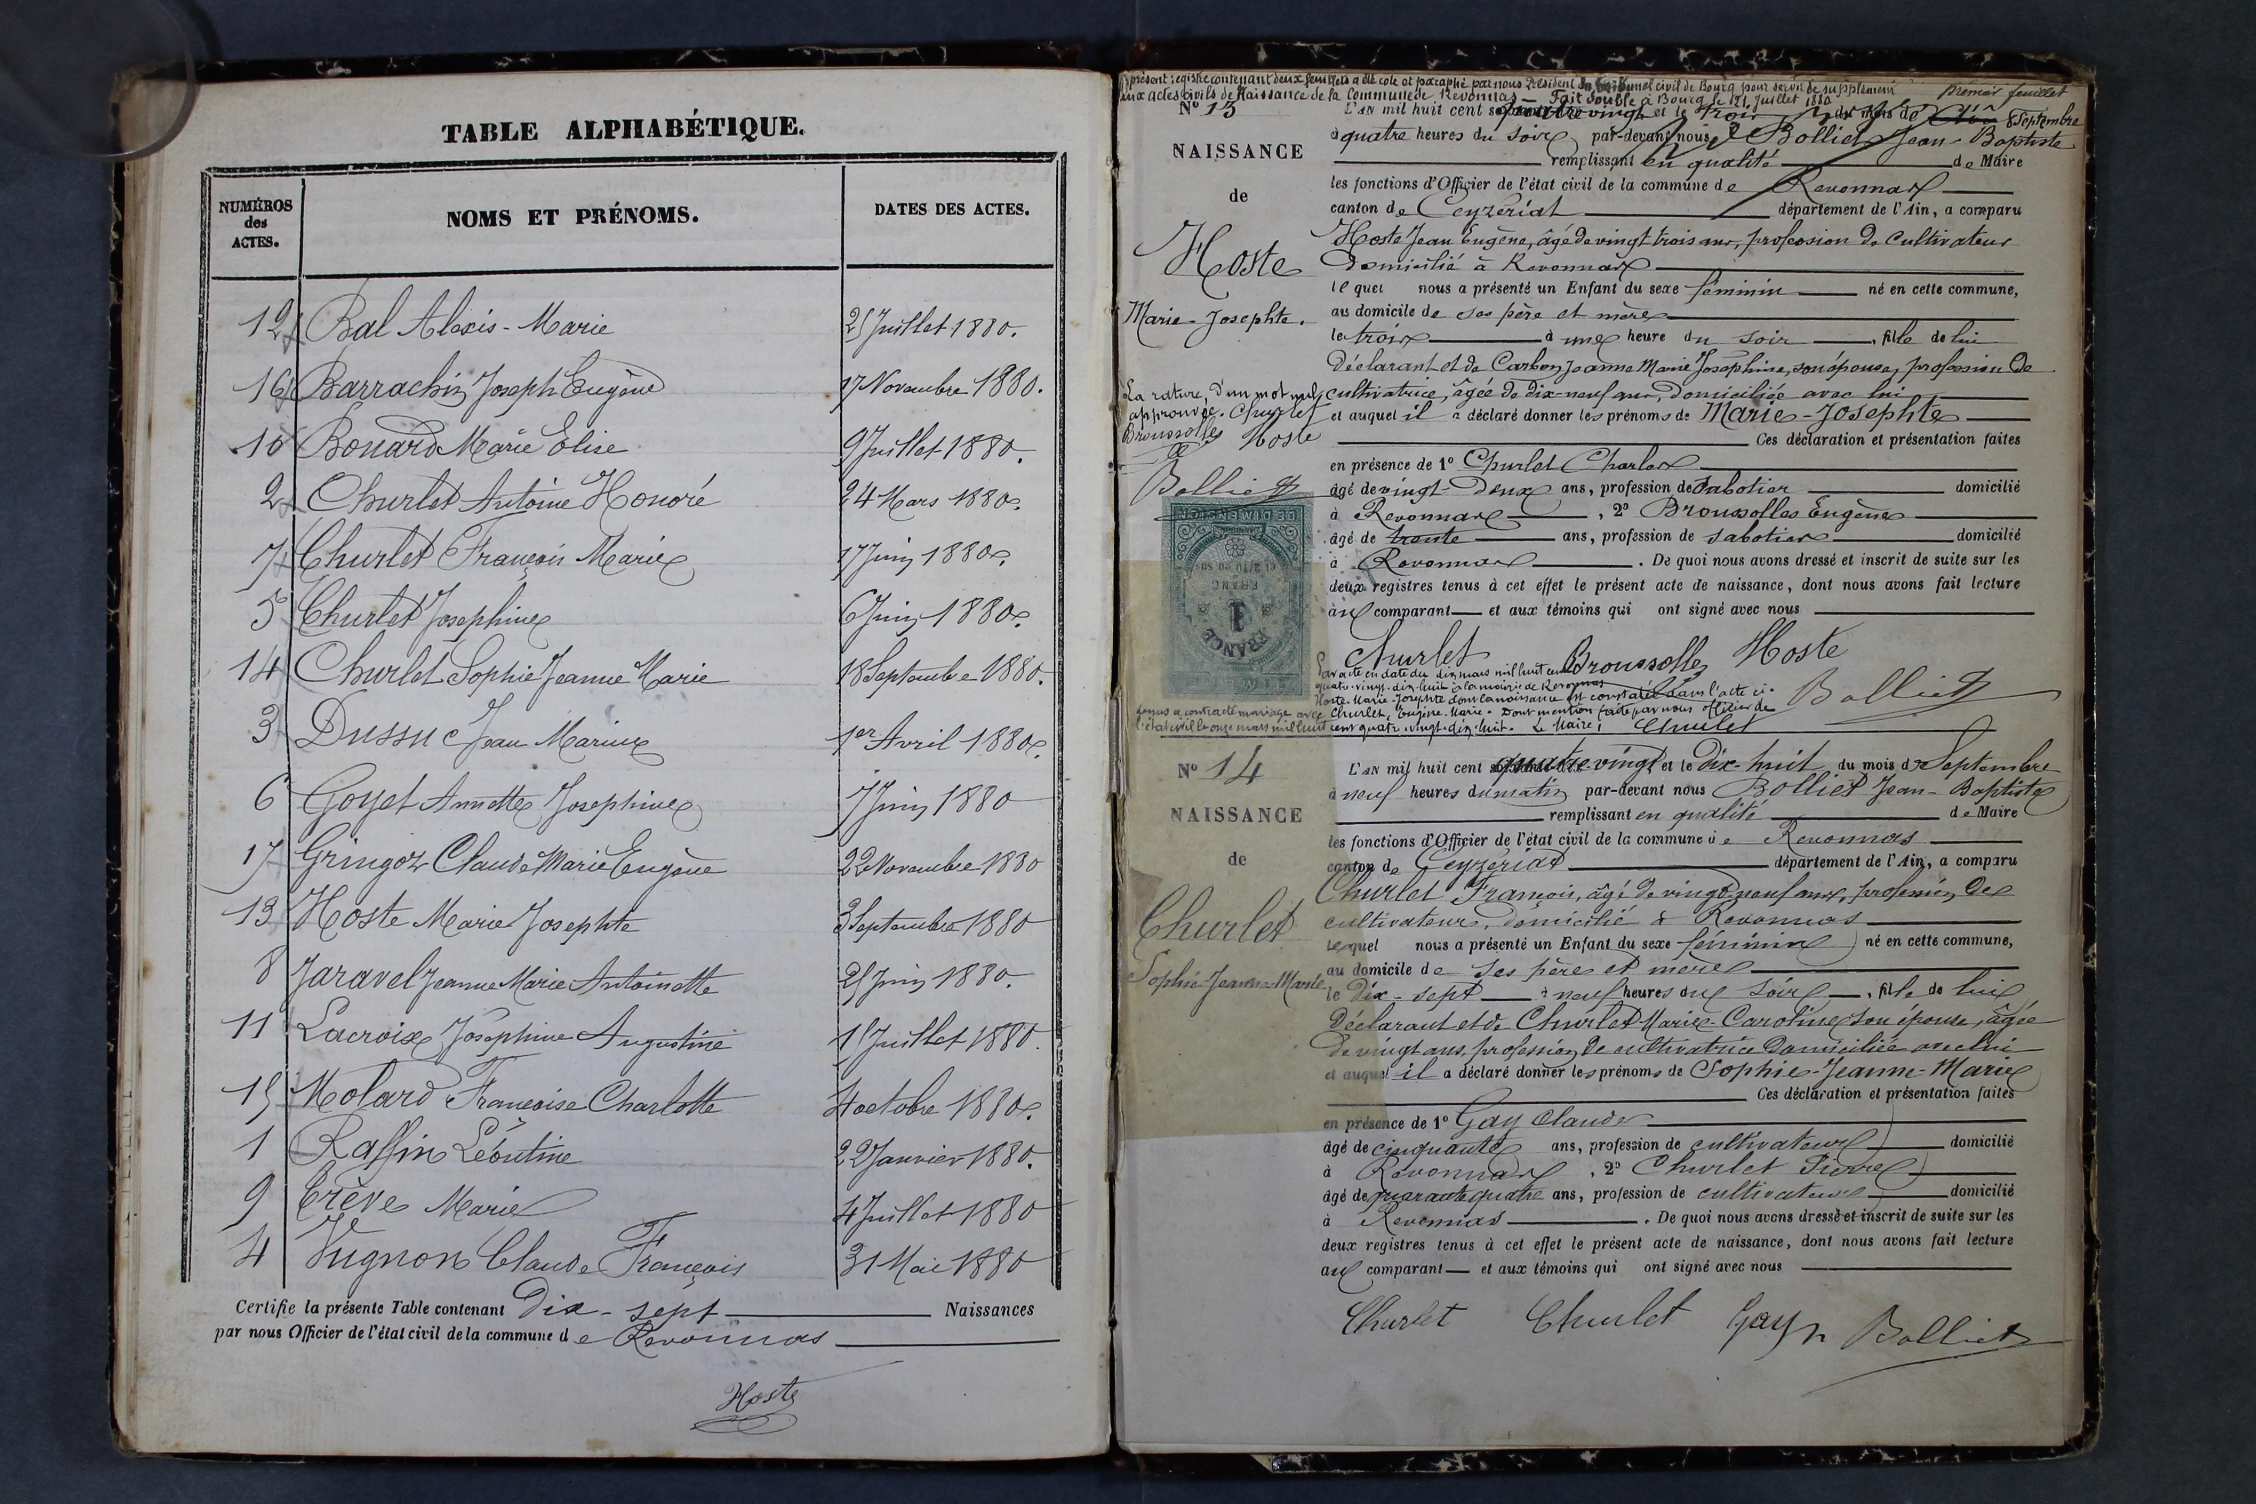 TABLE ALPHABÉTIQUE.
NUMÉROS des ACTES. NOMS ET PRÉNOMS. DATES DES ACTES.
12 Bal Alexis-Marie 25 Juillet 1880.
16 Barrachin Joseph Eugène 17 Novembre 1880.
10 Bonard Marie Elise 9 Juillet 1880.
2 Churlet Antoine Honoré 24 Mars 1880.
7 Churlet François Marie 17 Juin 1880.
5 Churlet Josephine 6 Juin 1880.
14 Churlet Sophie Jeanne Marie 18 Septembre 1880.
3 Dussuc Jean Marius 1er Avril 1880.
6 Goyet Annette Josephine 7 Juin 1880
17 Gringoz Claude Marie Eugène 22 Novembre 1880
13 Hoste Marie Josephte 3 Septembre 1880
8 Jaravel Jeanne Marie Antoinette 25 Juin 1880.
11 Lacroix Joséphine Augustine 15 Juillet 1880.
15 Molard Françoise Charlotte 4 octobre 1880.
1 Raffin Léontine 22 Janvier 1880.
9 Crève Marie 4 Juillet 1880
4 Vugnon Claude François 31 Mai 1880
Certifie la présente Table contenant Dix-sept Naissances
par nous Officier de l'état civil de la commune de Revonnas
Hoste
présent registre contenant deux feuillets a été coté et paraphé par nous Président du tribunal civil de Bourg pour servir de supplément
aux actes civils de Naissance de la Commune de Revonnas — Fait double à Bourg le 121 Juillet 1880
premier feuillet
No 13
NAISSANCE
de
Hoste
Marie-Josephte.
La rature, d'un mot nul
approuvée. Churlet
Broussolles Hoste
Bolliet
L'AN mil huit cent quatre vingt et le trois du mois de Septembre
à quatre heures du soir par-devant nous Bolliet Jean-Baptiste
remplissant en qualité de Maire
les fonctions d'Officier de l'état civil de la commune de Revonnas
canton de Ceyzériat département de l'Ain, a comparu
Hoste Jean Eugène, âgé de vingt trois ans, profession de cultivateur
domicilié à Revonnas
lequel nous a présenté un Enfant du sexe féminin né en cette commune,
au domicile de ses père et mère
le trois à une heure du soir, fille de lui
Déclarant et de Carbon Jeanne Marie Joséphine, son épouse, profession de
cultivatrice, âgée de dix-neuf ans, domiciliée avec lui
et auquel il a déclaré donner les prénoms de Marie-Josephte
Ces déclaration et présentation faites
en présence de 1° Churlet Charles
âgé de vingt-deux ans, profession de Sabotier domicilié
à Revonnas, 2° Broussolles Eugène
âgé de trente ans, profession de sabotier domicilié
à Revonnas. De quoi nous avons dressé et inscrit de suite sur les
deux registres tenus à cet effet le présent acte de naissance, dont nous avons fait lecture
au comparant et aux témoins qui ont signé avec nous
DE DIMENSION
ET 2/10 EN SUS
1 FRANC
FRANCE
Churlet Broussolles Hoste
Bolliet
Par acte en date du dix mars mil huit cent
quatre-vingt-dix-huit à la mairie de Revonnas
Hoste Marie-Josephte dont la naissance est constatée dans l'acte ci-
dessus a contracté mariage avec Churlet, Eugène-Marie. Dont mention faite par nous officier de
l'état civil le onze mars mil huit cent quatre-vingt-dix-huit. Le Maire, Churlet
No 14
NAISSANCE
de
Churlet
Sophie-Jeanne-Marie
L'AN mil huit cent quatre-vingt et le dix-huit du mois de Septembre
à neuf heures du matin par-devant nous Bolliet Jean-Baptiste
remplissant en qualité de Maire
les fonctions d'Officier de l'état civil de la commune de Revonnas
canton de Ceyzériat département de l'Ain, a comparu
Churlet François, âgé de vingt-neuf ans, profession de
cultivateur, domicilié à Revonnas
lequel nous a présenté un Enfant du sexe féminin né en cette commune,
au domicile de ses père et mère
le dix-sept à neuf heures du soir, fille de lui
Déclarant et de Churlet Marie-Caroline son épouse, âgée
de vingt ans, profession de cultivatrice domiciliée avec lui
et auquel il a déclaré donner les prénoms de Sophie-Jeanne-Marie
Ces déclaration et présentation faites
en présence de 1° Gay Claude
âgé de cinquante ans, profession de cultivateur domicilié
à Revonnas, 2° Churlet Pierre
âgé de quarante quatre ans, profession de cultivateur domicilié
à Revonnas. De quoi nous avons dressé et inscrit de suite sur les
deux registres tenus à cet effet le présent acte de naissance, dont nous avons fait lecture
au comparant et aux témoins qui ont signé avec nous
Churlet Churlet Gay Bolliet